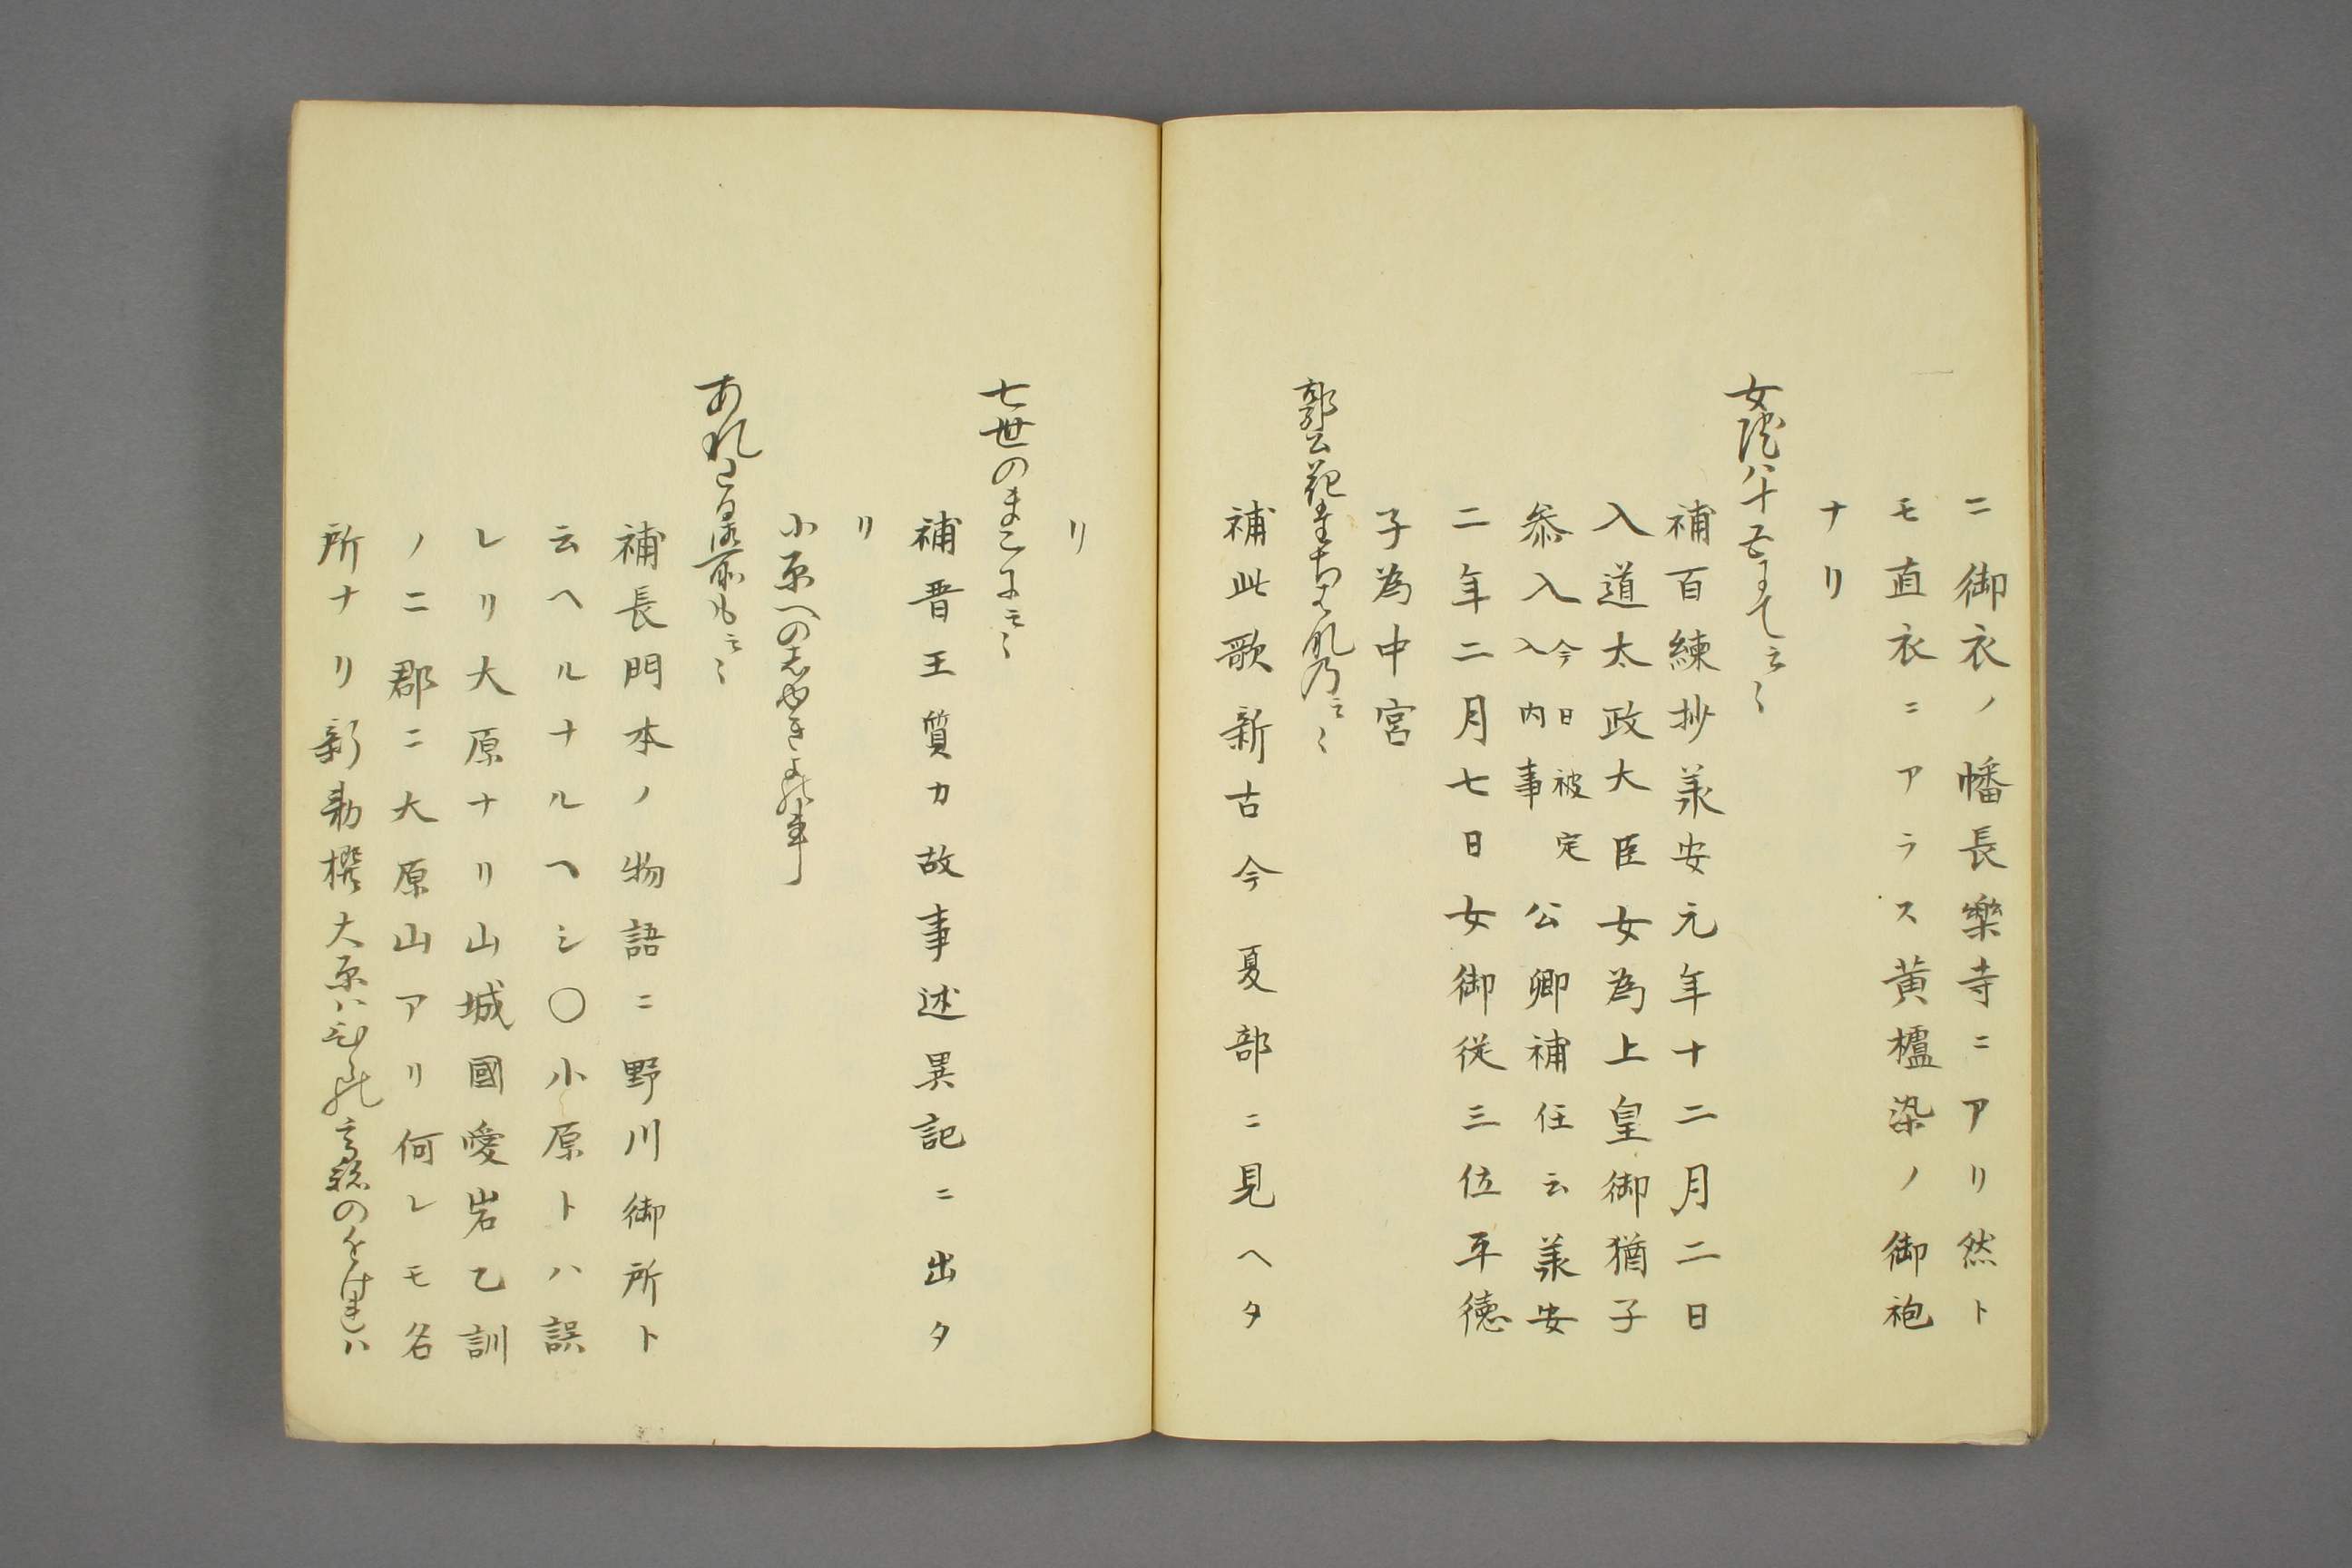 ニ御衣ノ幡長樂寺ニアリ然ト
モ直衣ニアラス黄櫨染ノ御袍
ナリ
女院八十五まて云〻
補百練抄羕安元年十二月二日
入道太政大臣女為上皇御猶子
叅入今日被定入内事公卿補任云羕安
二年二月七日女御従三位平徳
子為中宮
郭公花たちはな乃云〻
補此歌新古今夏部ニ見ヘタ
リ
七世のまこに云〻
補晋王質カ故事述異記ニ出タ
リ
小原への
あれ
補長門本ノ物語ニ野川御所ト
云ヘルナルヘシ〇小原トハ誤
レリ大原ナリ山城國愛岩乙訓
ノ二郡ニ大原山アリ何レモ名
所ナリ新勅撰大原ハ